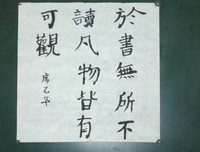 於書無所不
讀凡物皆有
可觀
席乙华